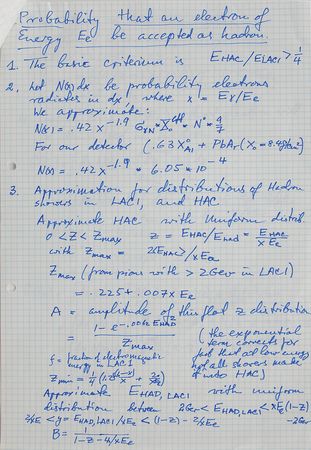 Probability that an electron of
Energy Ee be accepted as hadron.
1. The basic criterium is EHAC/ELAC1 > 1/4
2. Let N(x)dx be probability electrons
radiates in dx, where x = Eγ/Ee
We approximate:
N(x) = .42 x^-1.9 * N * 9/7
For our detector (.63 X°Al + PbAr (X₀ = 8.4g/cm²)
N(x) = .42 x^-1.9 * 6.05 * 10^-4
3. Approximation for distributions of Hadron
showers in LAC1, and HAC
Approximate HAC with Uniform distrib
0 < Z < Zmax z = EHAC/EHad = EHAC/xEe
with Zmax = 2<EHAC>/xEe
Zmax (from pions with > 2GeV in LAC1)
= .225 + .007 x Ee
A = amplitude of the flat z distribution
= 1 - e^-.006 EHAD / Zmax
(the exponential
term corrects for
fact that at low energy
not all showers make
it into HAC)
f = fraction of electromagnetic
energy in LAC1
Zmin = 1/4
Approximate EHAD,LAC1 with uniform
distribution between 2GeV < EHAD,LAC1 < xEe(1-z)
-2GeV
2/xEe < y = EHAD,LAC1/xEe < (1-z) - 2/xEe
B = 1/(1-z-4/xEe)